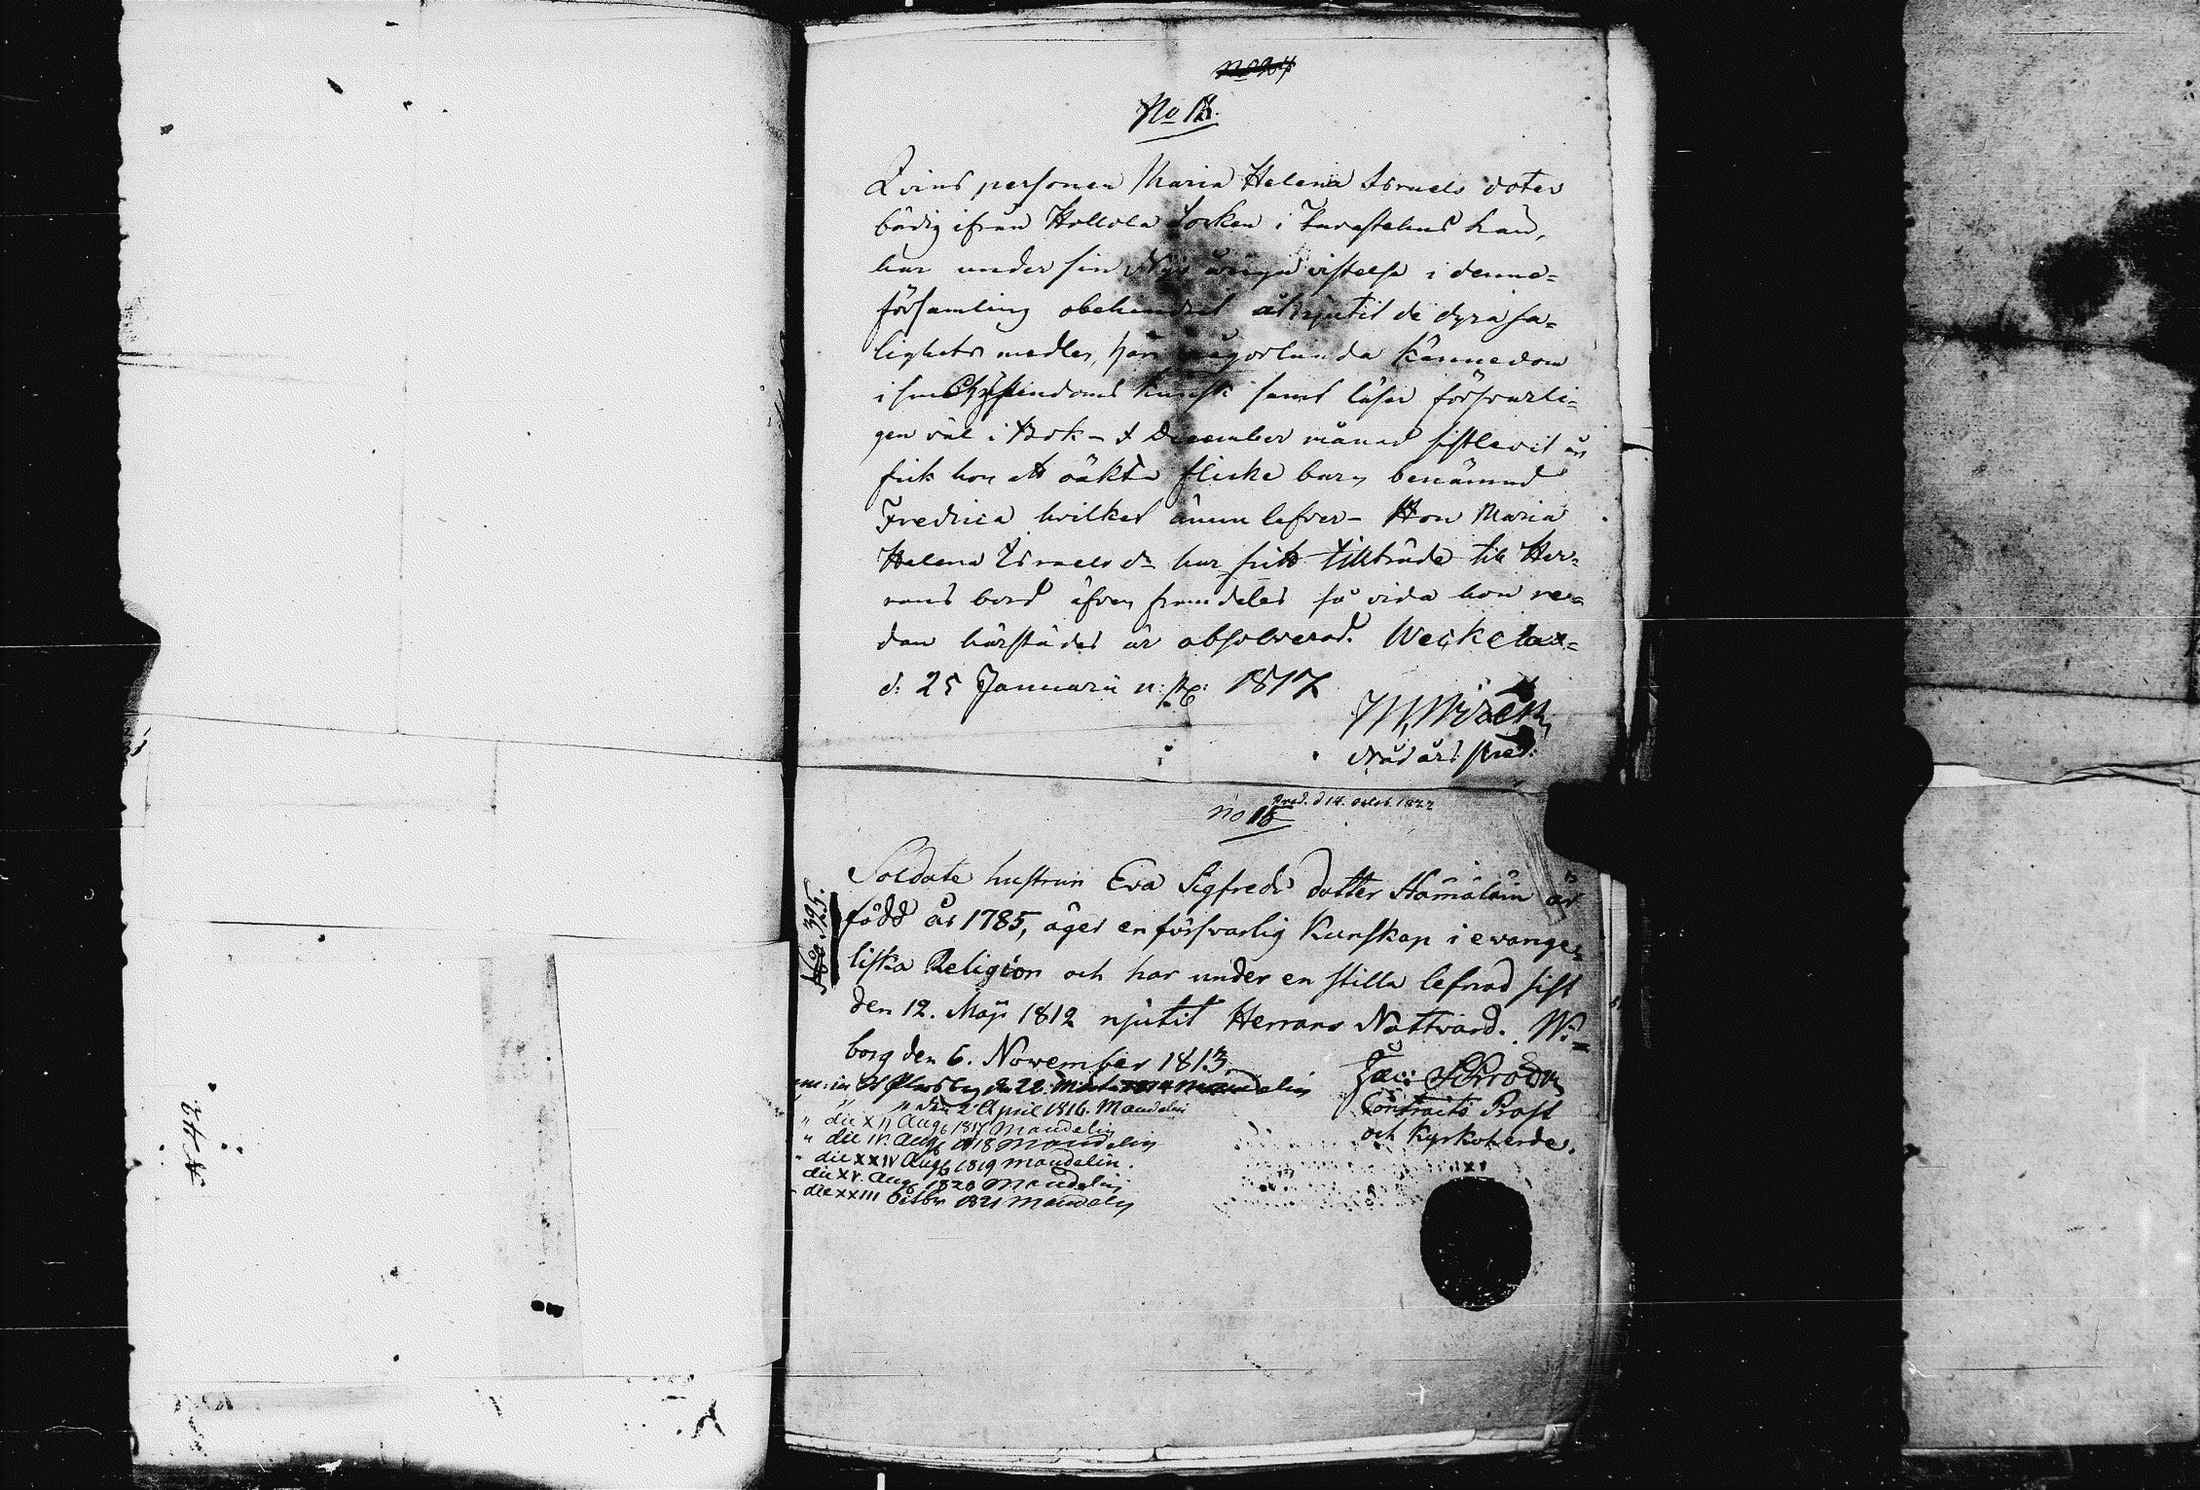 No 18.
Qvins personen Maria Helena Israels doter
bördig ifrån Hollola Socken i Tavastehus Län,
har under sin vistelse i denna
församling obehindrat åtnjutit de dyra sa-
lighets medlen, har någorlunda kännedom
i sin Christendoms kunsk: samt läser försvarli-
gen väl i Bok - I December månad sistlevit år
fick hon ett oäkta flicke barn benämnd
Fredrica hvilket ännu lefver - Hon Maria
Helena Israels dr har fritt tillträde till Her-
rans bord äfven framdeles så vida hon re-
dan härstädes är absolverad. Weckelax
d: 25 Januarii n: st: 1817
Nådårs Pred:
Prod. d 14. Octob. 1822
No 18
Soldate hustrun Eva Sigfreds dotter Hämäläin är
född år 1785, äger en försvarlig Kunskap i evange-
liska Religion och har under en stilla lefnad sist
den 12. Maji 1812 njutit Herrans Nattvard. Wi-
borg den 6. November 1813.
Pag. 395.
Contracts Prost
och Kyrkoherde.
" den 2 April 1816. Mandelin
" die XII Aug 1817 Mandelin
" die IV. Aug 1818 Mandelin
" die XXIV Aug 1819 Mandelin.
die XV. Aug 1820 Mandelin
- die XXIII Octobr 1821 Mandelin